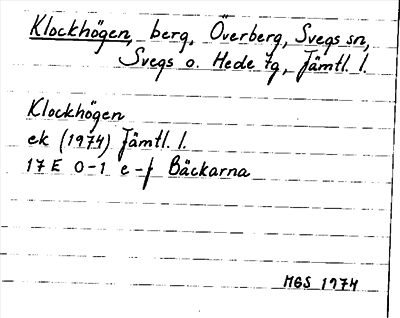 Klockhögen, berg, Överberg, Svegs sn,
Svegs o. Hede tg, Jämtl. l.
Klockhögen
ek (1974) Jämtl. l.
17 E 0-1 e-f Bäckarna
MGS 1974